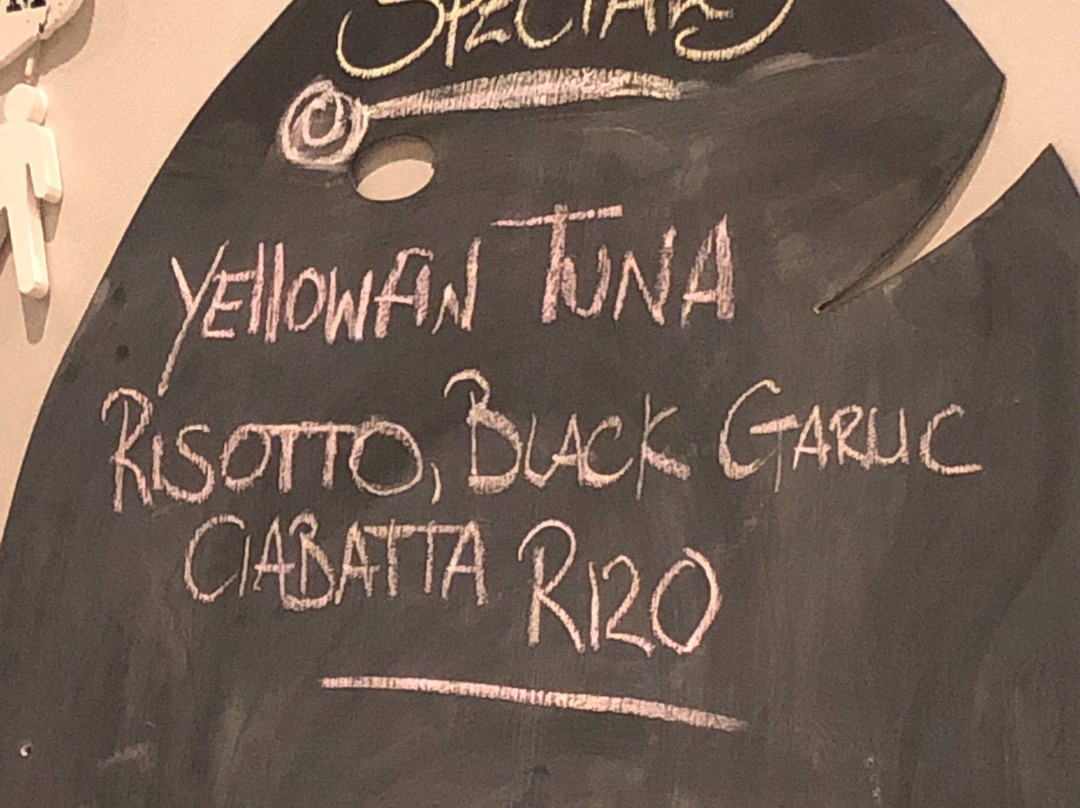 SPECIALS
YEllOWFIN TUNA
RISOTTO, BLACK GARLIC
CIABATTA R120